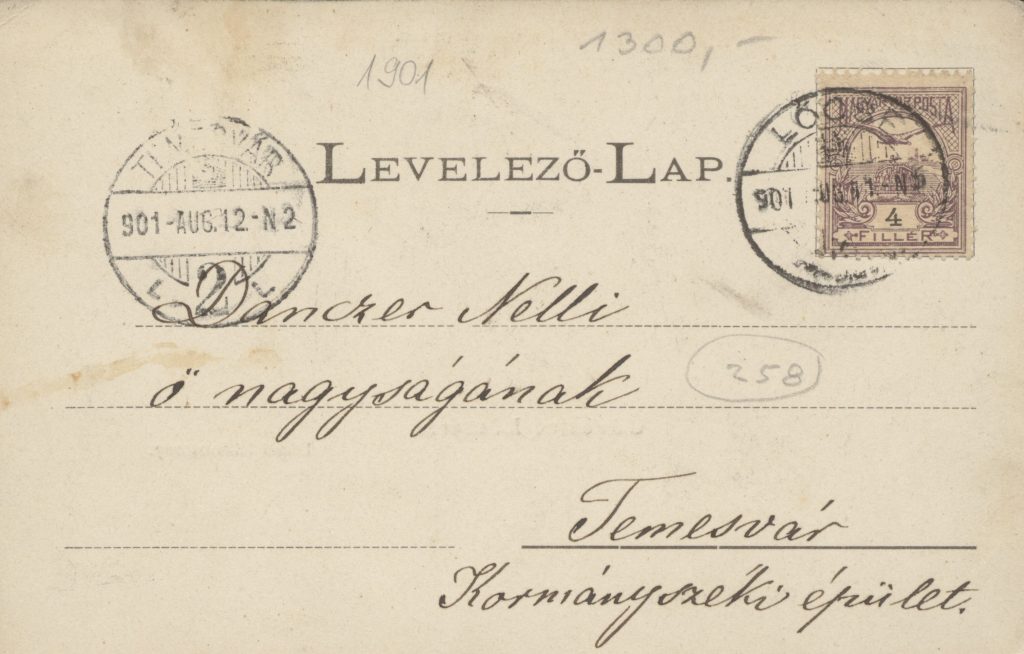 1300,-
1901
LEVELEZŐ-LAP.
TEMESVÁR
901-AUG.12.-N2
2
LŐCSE
901 AUG.11.-N5
MAGY. KIR. POSTA
4
FILLÉR
Danczer Nelli
ő nagyságának
258
Temesvár
Kormányszéki épület.